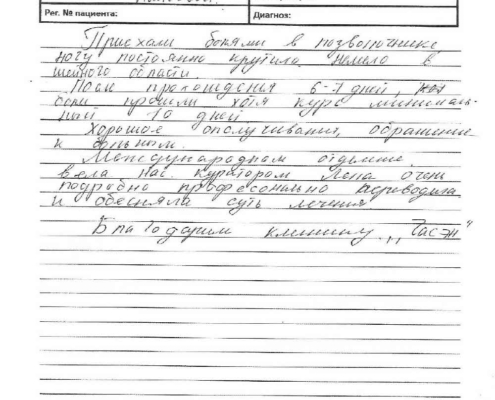 Рег. № пациента: Диагноз:
Приехали болями в позвоночнике,
ногу постоянно крутило немело в
шейного области.
После прохождения 6-7 дней,
боли прошли хотя курс минималь-
ный 10 дней
Хорошое обслучивания, обрашение
к больным.
Международном отделение
вела нас куратором Лена очень
подробно професионально переводила
и обесняла суть лечения
Благодарим клинику „Часэн"